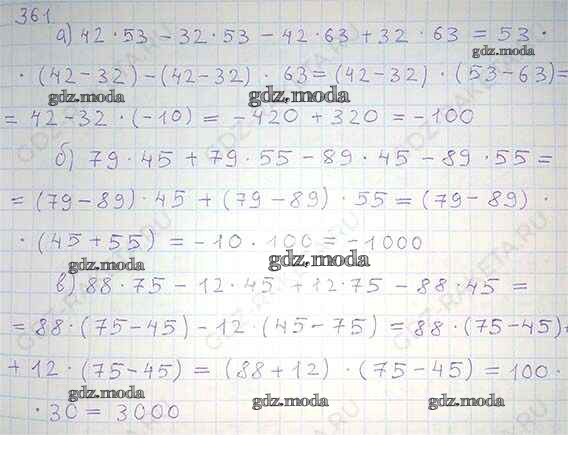 361
а) 42 · 53 - 32 · 53 - 42 · 63 + 32 · 63 = 53 ·
gdz.moda
· (42 - 32) - (42 - 32) · 63 = (42 - 32) · (53 - 63) =
gdz.moda gdz.moda gdz.moda
= 42 - 32 · (-10) = -420 + 320 = -100
б) 79 · 45 + 79 · 55 - 89 · 45 - 89 · 55 =
= (79 - 89) · 45 + (79 - 89) · 55 = (79 - 89) ·
· (45 + 55) = -10 · 100 = -1000
gdz.moda gdz.moda
в) 88 · 75 - 12 · 45 + 12 · 75 - 88 · 45 =
= 88 · (75 - 45) - 12 · (45 - 75) = 88 · (75 - 45) +
+ 12 · (75 - 45) = (88 + 12) · (75 - 45) = 100 ·
gdz.moda gdz.moda gdz.moda
· 30 = 3000